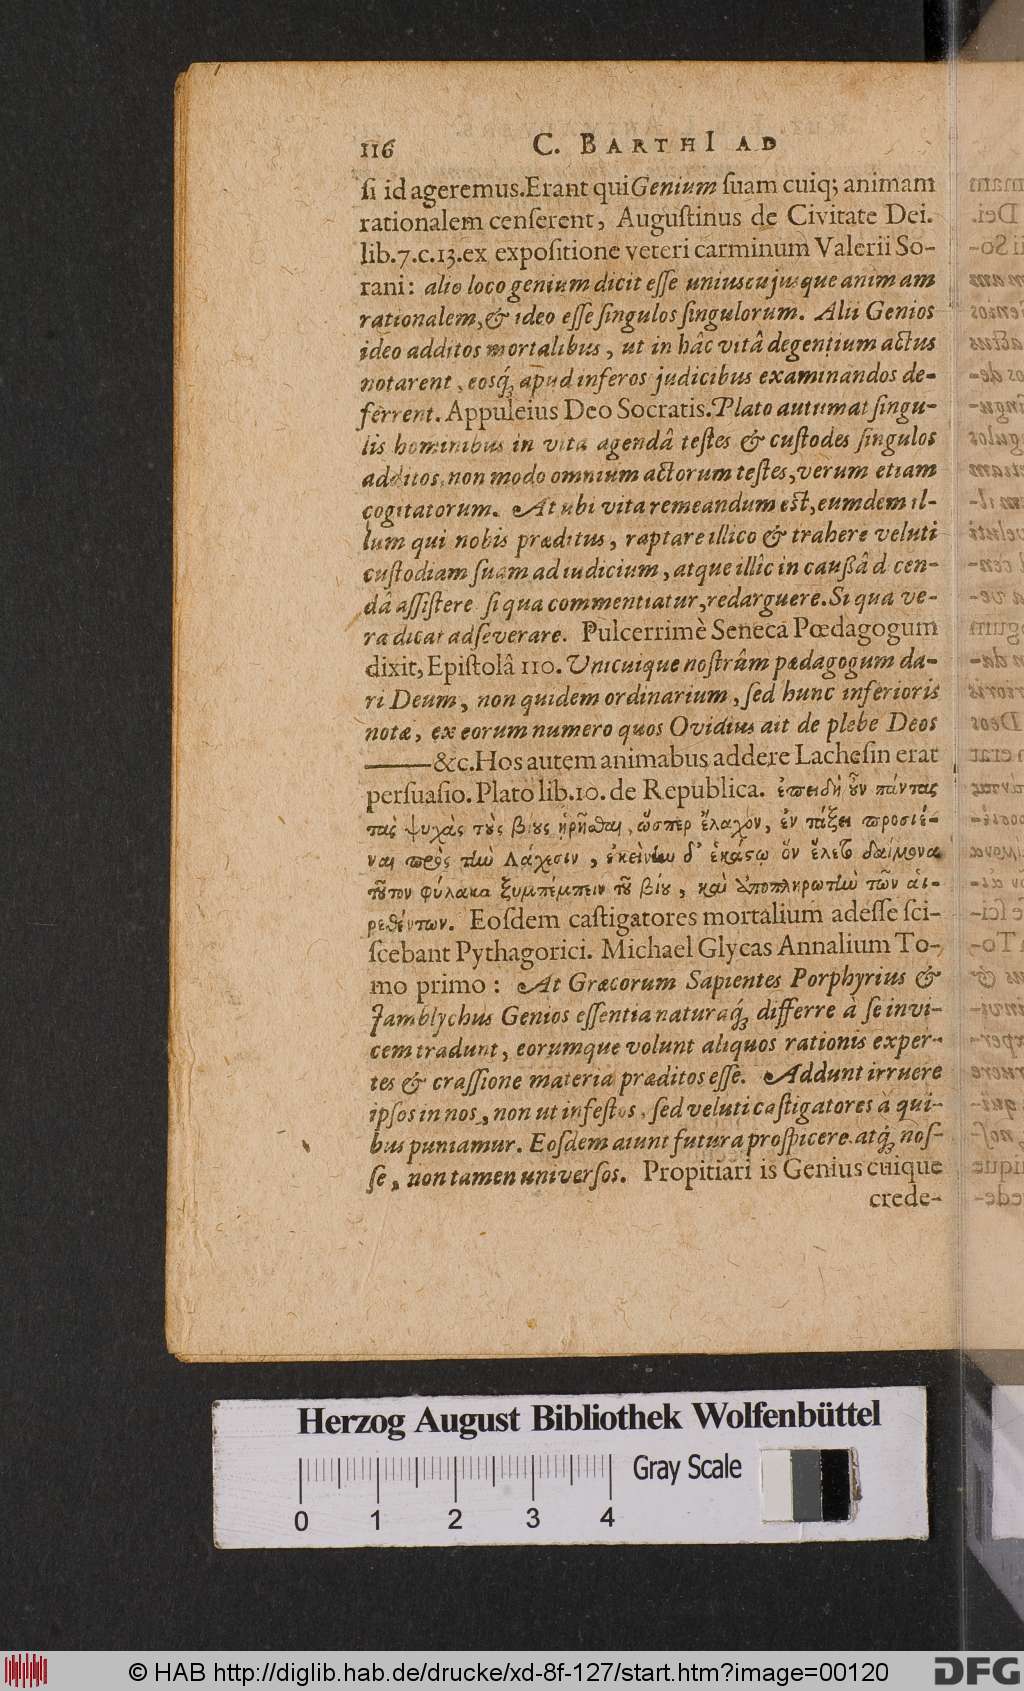 116 C. BARTHI AD
si id ageremus. Erant qui Genium suam cuiq; animam
rationalem censerent, Augustinus de Civitate Dei.
lib. 7. c. 13. ex expositione veteri carminum Valerii So-
rani: alio loco genium dicit esse uniuscujusque animam
rationalem, & ideo esse singulos singulorum. Alii Genios
ideo additos mortalibus, ut in hâc vitâ degentium actus
notarent, eosq́; apud inferos judicibus examinandos de-
ferrent. Appuleius Deo Socratis. Plato autumat singu-
lis hominibus in vita agendâ testes & custodes singulos
additos, non modo omnium actorum testes, verum etiam
cogitatorum. At ubi vita remeandum est, eumdem il-
lum qui nobis præditus, raptare illico & trahere veluti
custodiam suam ad iudicium, atque illîc in caußâ dicen-
dâ assistere si qua commentiatur, redarguere. Si qua ve-
ra dicat adseverare. Pulcerrimè Seneca Pœdagogum
dixit, Epistolâ 110. Unicuique nostrûm pædagogum da-
ri Deum, non quidem ordinarium, sed hunc inferioris
notæ, ex eorum numero quos Ovidius ait de plebe Deos
——&c. Hos autem animabus addere Lachesin erat
persuasio. Plato lib. 10. de Republica. ἐπειδὴ οὖν πάντας
τὰς ψυχὰς τοὺς βίους ᾑρῆσθαι, ὥσπερ ἔλαχον, ἐν τάξει προσιέ-
ναι πρὸς τὴν Λάχεσιν, ἐκείνην δ' ἑκάστῳ ὃν ἕλετο δαίμονα
τοῦτον φύλακα ξυμπέμπειν τοῦ βίου, καὶ ἀποπληρωτὴν τῶν αἱ-
ρεθέντων. Eosdem castigatores mortalium adesse sci-
scebant Pythagorici. Michael Glycas Annalium To-
mo primo: At Græcorum Sapientes Porphyrius &
Jamblychus Genios essentia naturaq́; differre à se invi-
cem tradunt, eorumque volunt aliquos rationis exper-
tes & crassione materia præditos esse. Addunt irruere
ipsos in nos, non ut infestos, sed veluti castigatores à qui-
bus puniamur. Eosdem aiunt futura prospicere atq́; nos-
se, non tamen universos. Propitiari is Genius cuique
crede-
Herzog August Bibliothek Wolfenbüttel
Gray Scale
0 1 2 3 4
© HAB http://diglib.hab.de/drucke/xd-8f-127/start.htm?image=00120
DFG